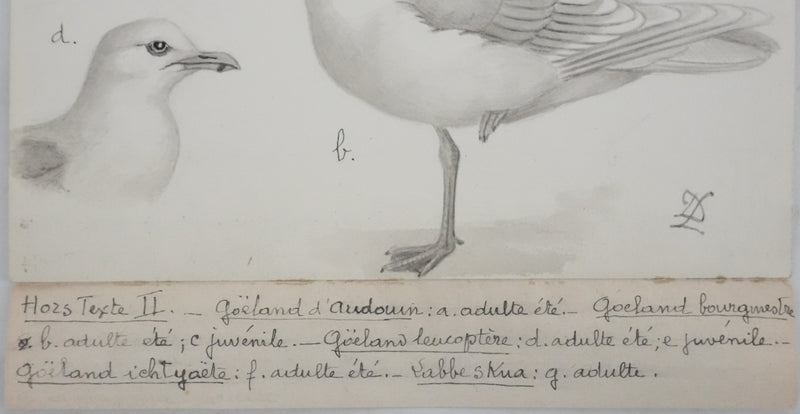 d.
b.
Hors Texte II. _ Goëland d'Audouin : a. adulte été _ Goeland bourgmestre
b. adulte été ; c juvénile. _ Goëland leucoptère : d. adulte été ; e juvénile. _
Goëland ichtyaète : f. adulte été. _ Labbe sKua : g. adulte.